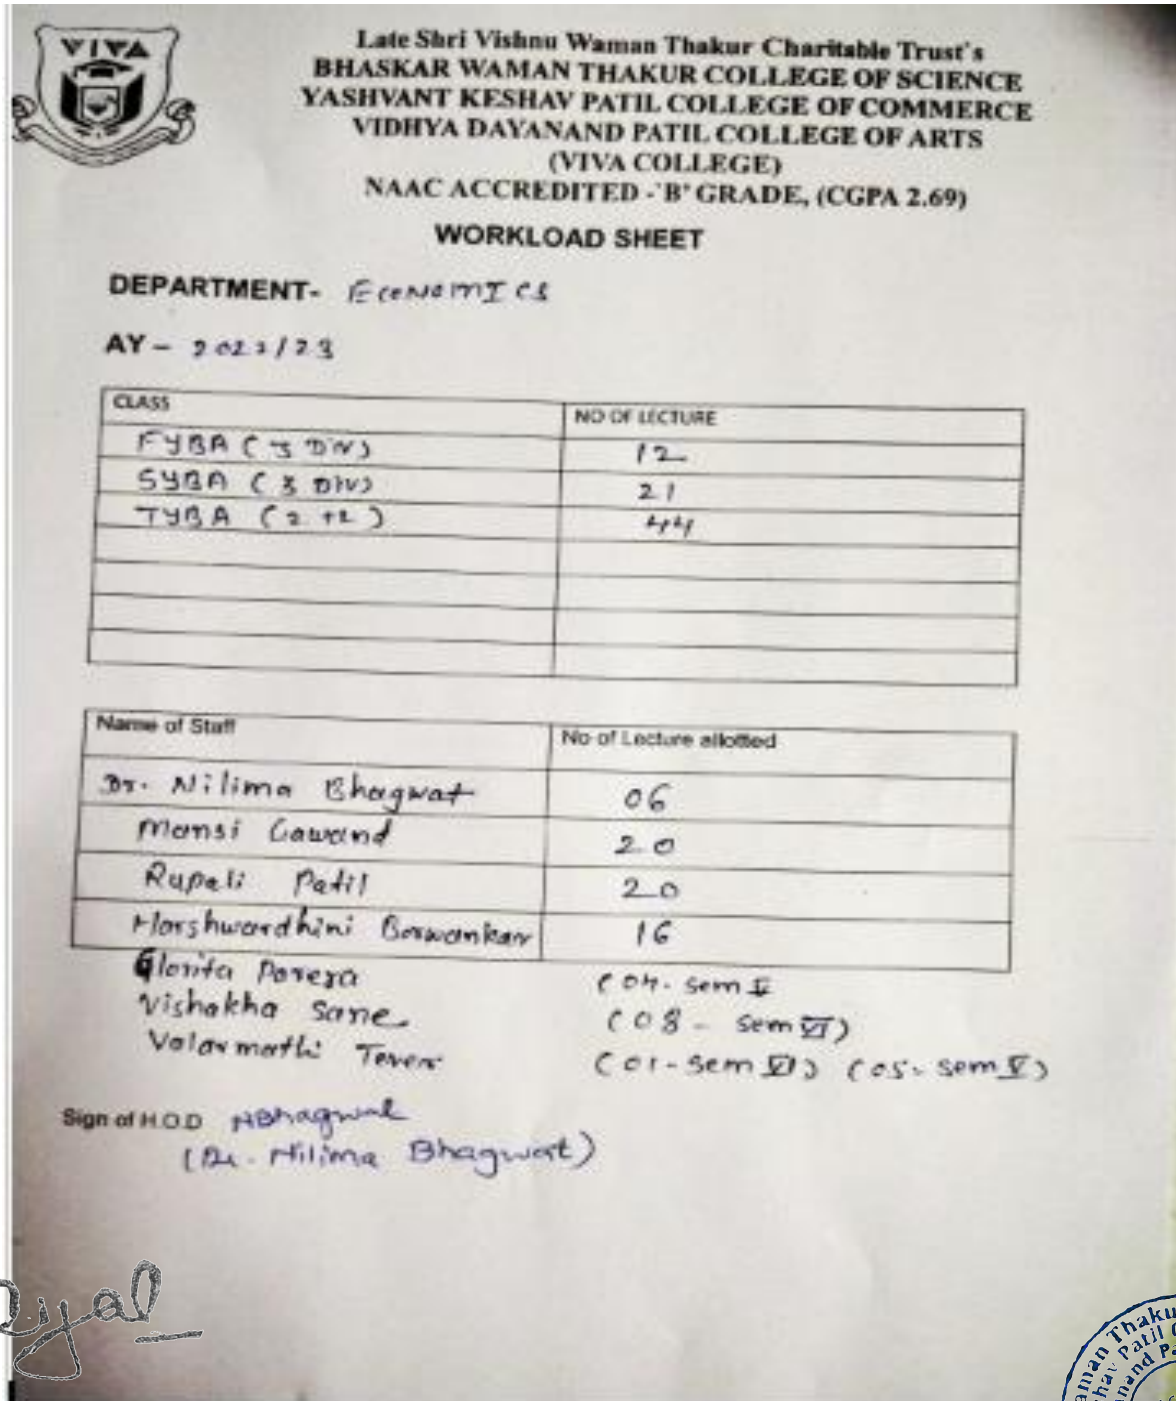 VIVA
Late Shri Vishnu Waman Thakur Charitable Trust's
BHASKAR WAMAN THAKUR COLLEGE OF SCIENCE
YASHVANT KESHAV PATIL COLLEGE OF COMMERCE
VIDHYA DAYANAND PATIL COLLEGE OF ARTS
(VIVA COLLEGE)
NAAC ACCREDITED -'B' GRADE, (CGPA 2.69)
WORKLOAD SHEET
DEPARTMENT- ECONOMICS
AY - 2022/23
CLASS NO OF LECTURE
FYBA (3 DIV) 12
SYBA (3 DIV) 21
TYBA (2 +2) 44
Name of Staff No of Lecture allotted
Dr. Nilima Bhagwat 06
Mansi Gawand 20
Rupali Patil 20
Harshwardhini Borwankar 16
Glorita Parera (04- sem II
Vishakha Sane (08 - sem VI)
Valarmathi Tever (01-sem VI) (05- sem V)
Sign of H.O.D NBhagwat
(Dr. Nilima Bhagwat)
aman Thaku
hav Patil C
nand Pa